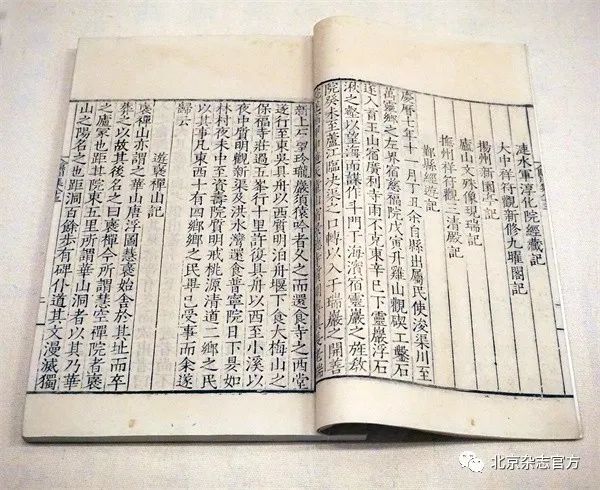 漣水軍淳化院經藏記
大中祥符觀新修九曜閣記
揚州新園亭記
廬山文殊像現瑞記
撫州祥符觀三清殿記
鄞縣經遊記
慶曆七年十一月丁丑余自縣出屬民使浚渠川至
萬靈鄉之左界宿慈福院戊寅升雞山觀碶工鑿石
遂入育王山宿廣利寺雨不克東辛巳下靈巖浮石
湫之壑以望海而謀作斗門于海濱宿靈巖之旌教
院癸未至蘆江臨決渠之口轉以入于瑞巖之開善
新上石望玲瓏巖須猿吟者久之而還食寺之西堂
遂行至東吳具舟以西質明泊舟堰下食大梅山之
保福寺莊過五峯行十里許復具舟以西至小溪以
夜中質明觀新渠及洪水灣還食普寧院日下昃如
林村夜未中至資壽院質明戒桃源清道二鄉之民
以其事凡東西十有四鄉鄉之民畢已受事而余遂
歸云
遊褒禪山記
褒禪山亦謂之華山唐浮圖慧褒始舍於其址而卒
葬之以故其後名之曰褒禪今所謂慧空禪院者褒
之廬冢也距其院東五里所謂華山洞者以其乃華
山之陽名之也距洞百餘步有碑仆道其文漫滅獨
北京杂志官方